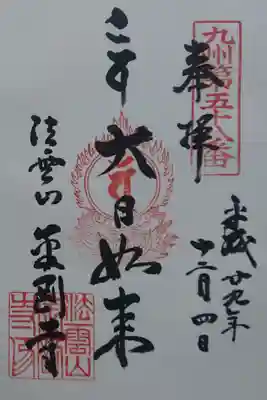 九州第五十八番
奉拝
平成廿九年
十二月四日
大日如来
法雲山 金剛寺
法雲山